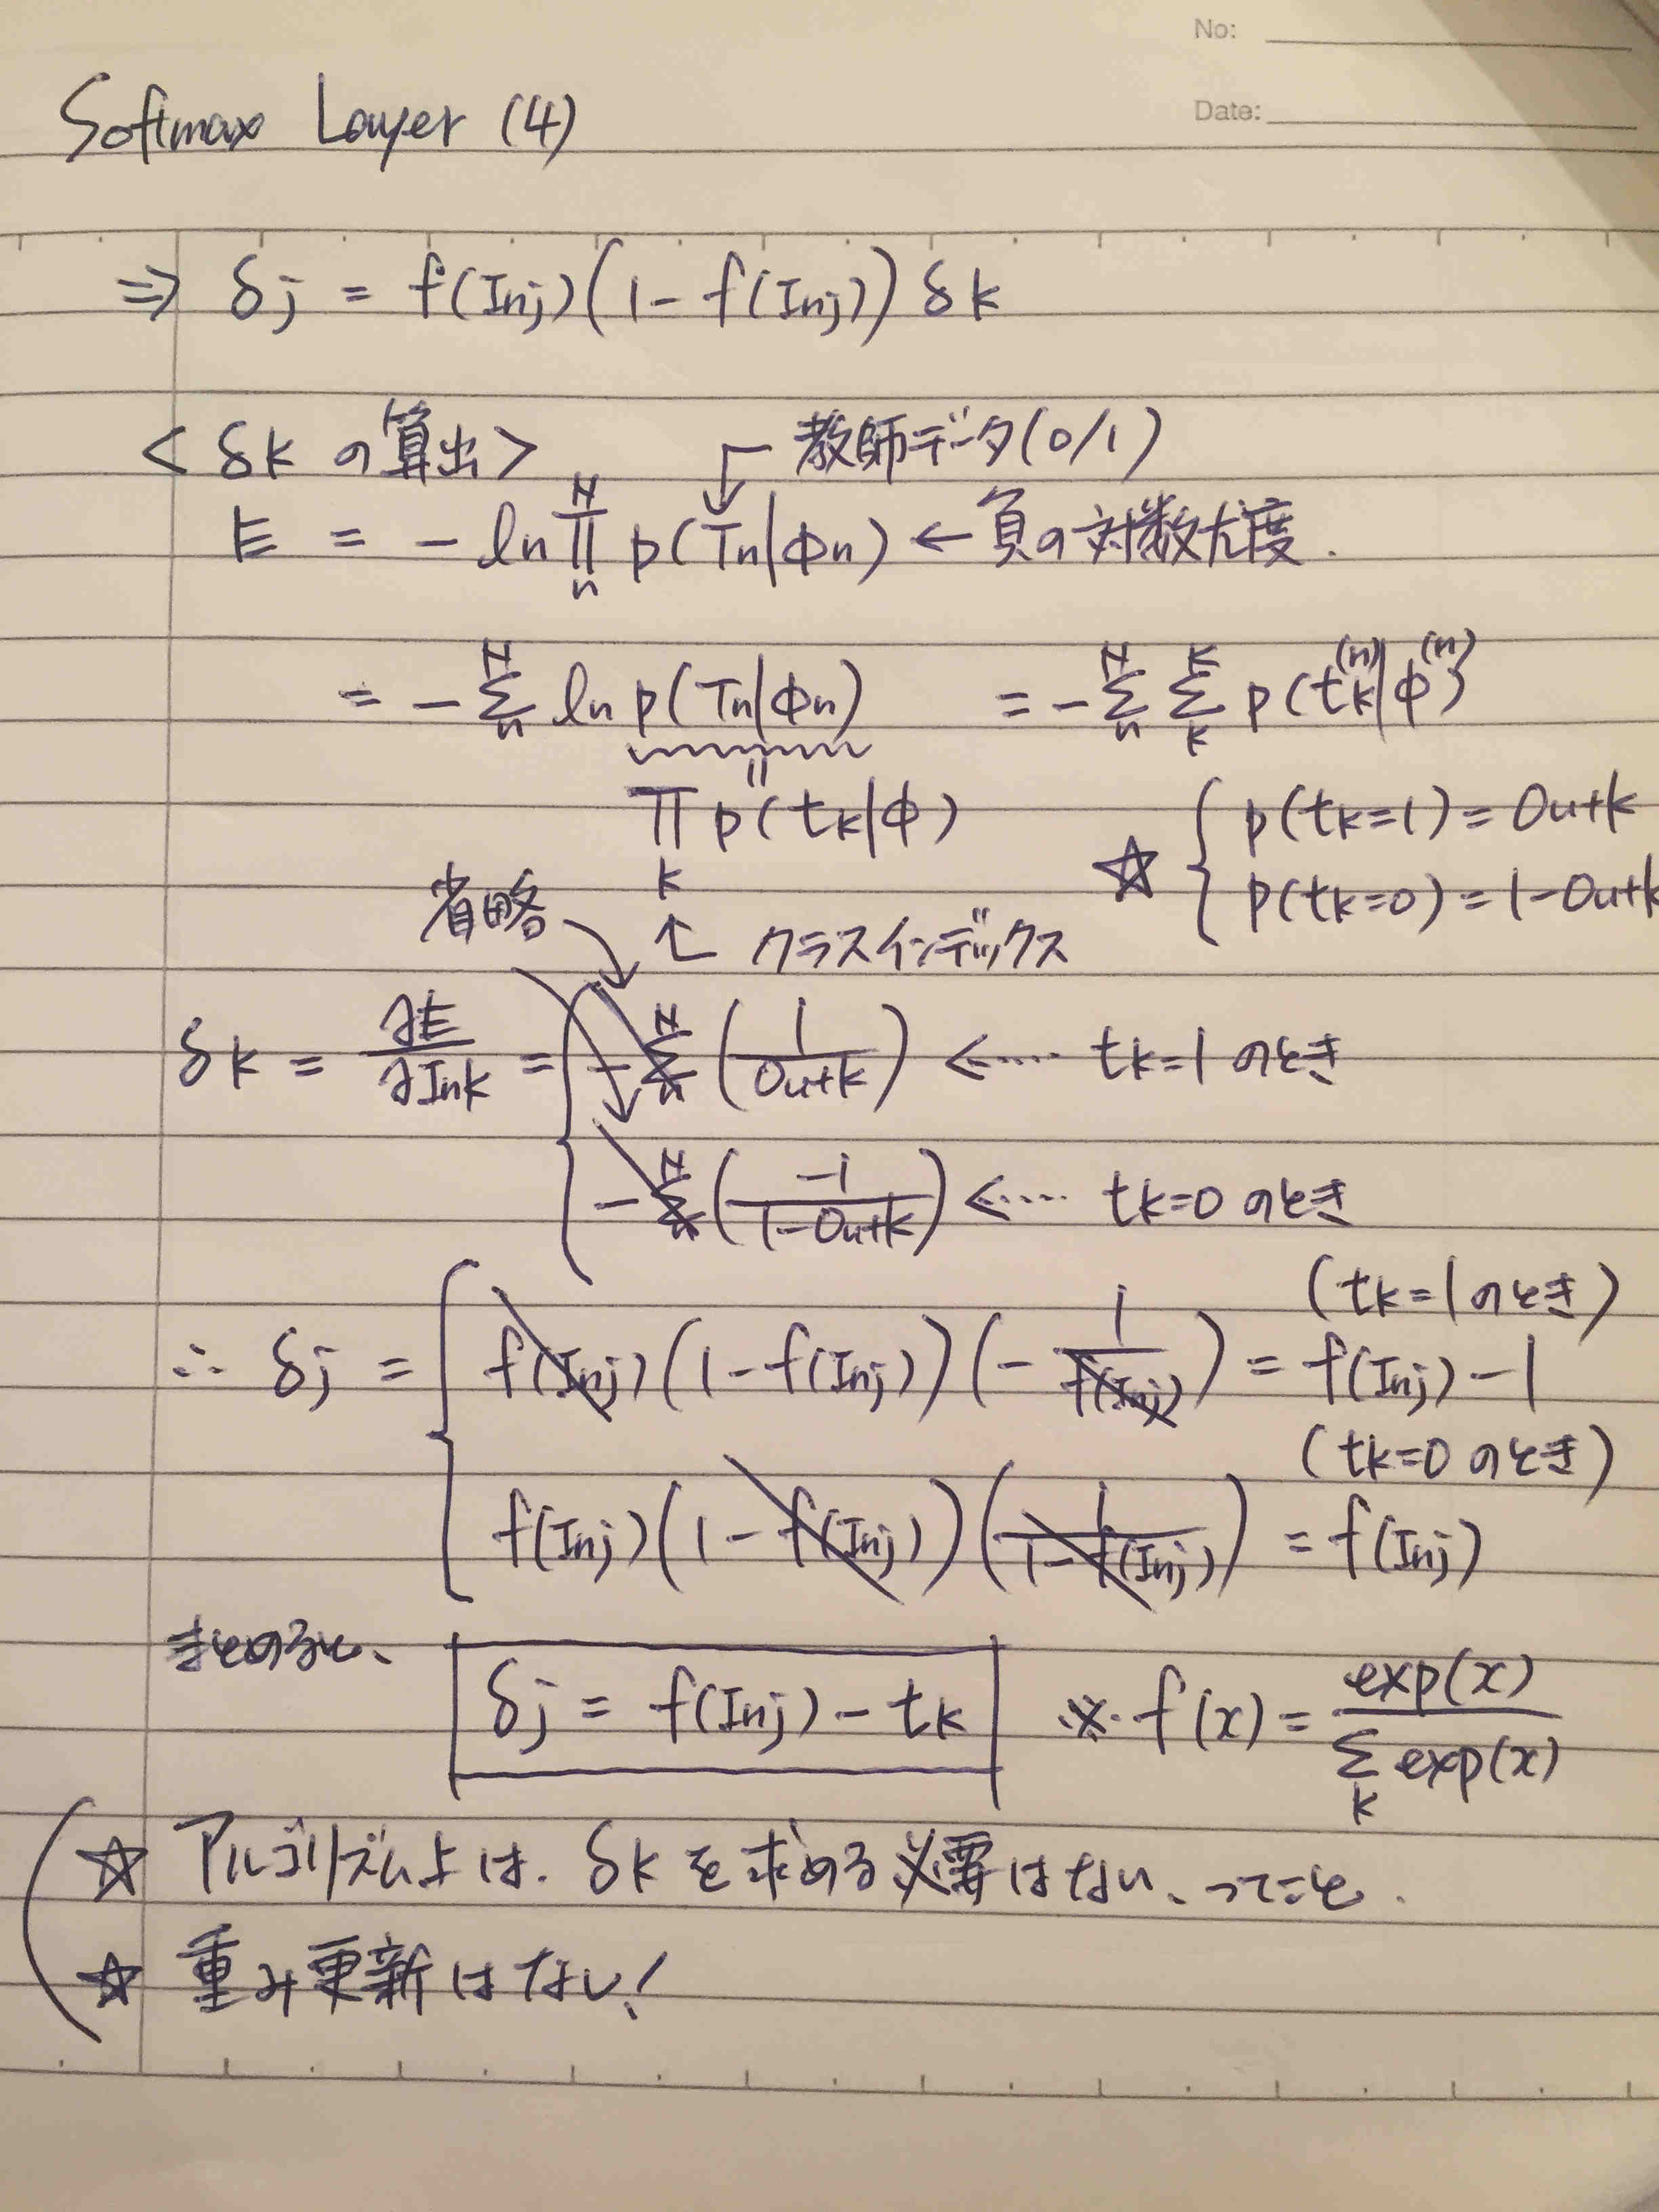 No:
Date:
Softmax Layer (4)
⇒ δj = f(Inj)(1-f(Inj)) δk
<δkの算出> 教師データ(0/1)
E = -ln Π_n^N p(Tn|Φn) ← 負の対数尤度.
= -Σ_n^N ln p(Tn|Φn) = -Σ_n^N Σ_k^K p(tk^(n)|Φ^(n))
Π_k p(tk|Φ) ☆ { p(tk=1) = Outk
p(tk=0) = 1-Outk
省略
↑ クラスインデックス
δk = ∂E/∂Ink = { -Σ_n^N (1/Outk) ←…. tk=1のとき
-Σ_n^N (-1/(1-Outk)) ←…. tk=0のとき
(tk=1のとき)
∴ δj = { f(Inj)(1-f(Inj))(-1/f(Inj)) = f(Inj)-1
(tk=0のとき)
f(Inj)(1-f(Inj))(1/(1-f(Inj))) = f(Inj)
まとめると、 δj = f(Inj)-tk ※ f(x) = exp(x)/Σ_k exp(x)
☆ アルゴリズム上は、δkを求める必要はない、ってこと.
☆ 重み更新はなし!